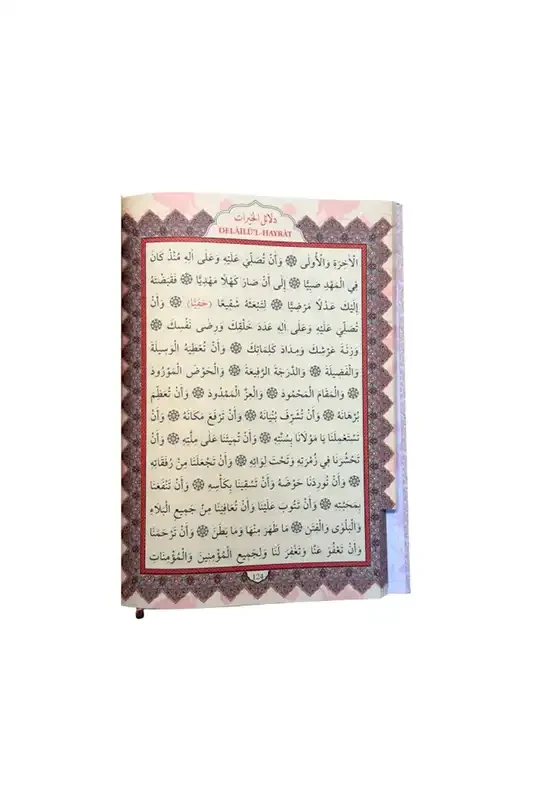 دلائل الخيرات
DELÂİLÜ'L-HAYRÂT
الْاٰخِرَةِ وَالْاُولٰى ۞ وَاَنْ تُصَلِّيَ عَلَيْهِ وَعَلٰى اٰلِهِ مُنْذُ كَانَ
فِي الْمَهْدِ صَبِيًّا ۞ اِلٰى اَنْ صَارَ كَهْلًا مَهْدِيًّا ۞ فَقَبَضْتَهُ
اِلَيْكَ عَدْلًا مَرْضِيًّا ۞ لِتَبْعَثَهُ شَفِيعًا (حَفِيًّا) ۞ وَاَنْ
تُصَلِّيَ عَلَيْهِ وَعَلٰى اٰلِهِ عَدَدَ خَلْقِكَ وَرِضٰى نَفْسِكَ ۞
وَزِنَةَ عَرْشِكَ وَمِدَادَ كَلِمَاتِكَ ۞ وَاَنْ تُعْطِيَهُ الْوَسِيلَةَ
وَالْفَضِيلَةَ ۞ وَالدَّرَجَةَ الرَّفِيعَةَ ۞ وَالْحَوْضَ الْمَوْرُودَ
۞ وَالْمَقَامَ الْمَحْمُودَ ۞ وَالْعِزَّ الْمَمْدُودَ ۞ وَاَنْ تُعَظِّمَ
بُرْهَانَهُ ۞ وَاَنْ تُشَرِّفَ بُنْيَانَهُ ۞ وَاَنْ تَرْفَعَ مَكَانَهُ ۞ وَاَنْ
تَسْتَعْمِلَنَا يَا مَوْلَانَا بِسُنَّتِهِ ۞ وَاَنْ تُمِيتَنَا عَلٰى مِلَّتِهِ ۞ وَاَنْ
تَحْشُرَنَا فِي زُمْرَتِهِ وَتَحْتَ لِوَائِهِ ۞ وَاَنْ تَجْعَلَنَا مِنْ رُفَقَائِهِ
۞ وَاَنْ تُورِدَنَا حَوْضَهُ ۞ وَاَنْ تَسْقِيَنَا بِكَأْسِهِ ۞ وَاَنْ تَنْفَعَنَا
بِمَحَبَّتِهِ ۞ وَاَنْ تَتُوبَ عَلَيْنَا وَاَنْ تُعَافِيَنَا مِنْ جَمِيعِ الْبَلَاءِ
وَالْبَلْوٰى وَالْفِتَنِ ۞ مَا ظَهَرَ مِنْهَا وَمَا بَطَنَ ۞ وَاَنْ تَرْحَمَنَا
وَاَنْ تَعْفُوَ عَنَّا وَتَغْفِرَ لَنَا وَلِجَمِيعِ الْمُؤْمِنِينَ وَالْمُؤْمِنَاتِ
124